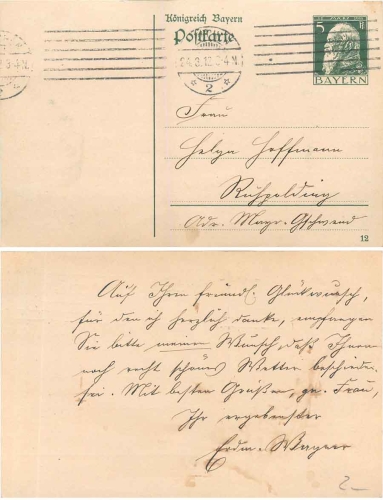 Königreich Bayern
Postkarte
24.3.12
2
5 Pf
BAYERN
Frau
Helga Hoffmann
Ruhpolding
Adr. Mayr-Gschwend
12
Auf Ihren freundl. Glückwunsch,
für den ich herzlich danke, empfangen
Sie bitte meinen Wunsch, daß Ihnen
noch recht schönes Wetter beschieden
sei. Mit besten Grüßen, gn. Frau,
Ihr ergebenster
Wagner
2